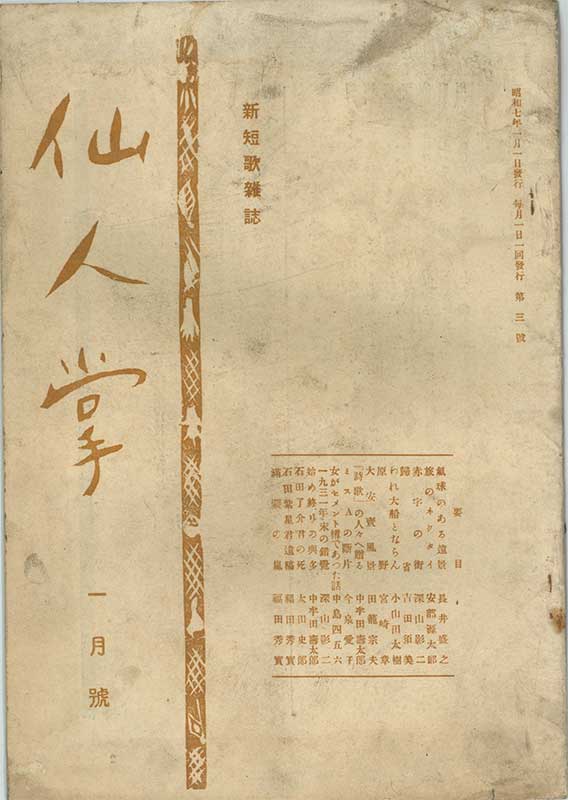 昭和七年一月一日發行 毎月一日一回發行 第三號
新短歌雜誌
仙人掌
一月號
要目
氣球のある遠景 長井盛之
旅のネクタイ 安部源太郎
赤字の街 深山影二
歸省 吉田須美
われ大船とならん 小山田太樹
原野 宮崎章
大安賣風景 田籠宗夫
「詩歌」の人々へ贈る 中牟田壽太郎
ミスAの斷片 今泉愛子
女がセメント樽であつた話 中島四五六
一九三一年末の錯覺 深山影二
始め終りの與多 中牟田壽太郎
石田了介君の死 太田史郎
石田紫星君遺稿 福田秀實
の嵐 福田秀實